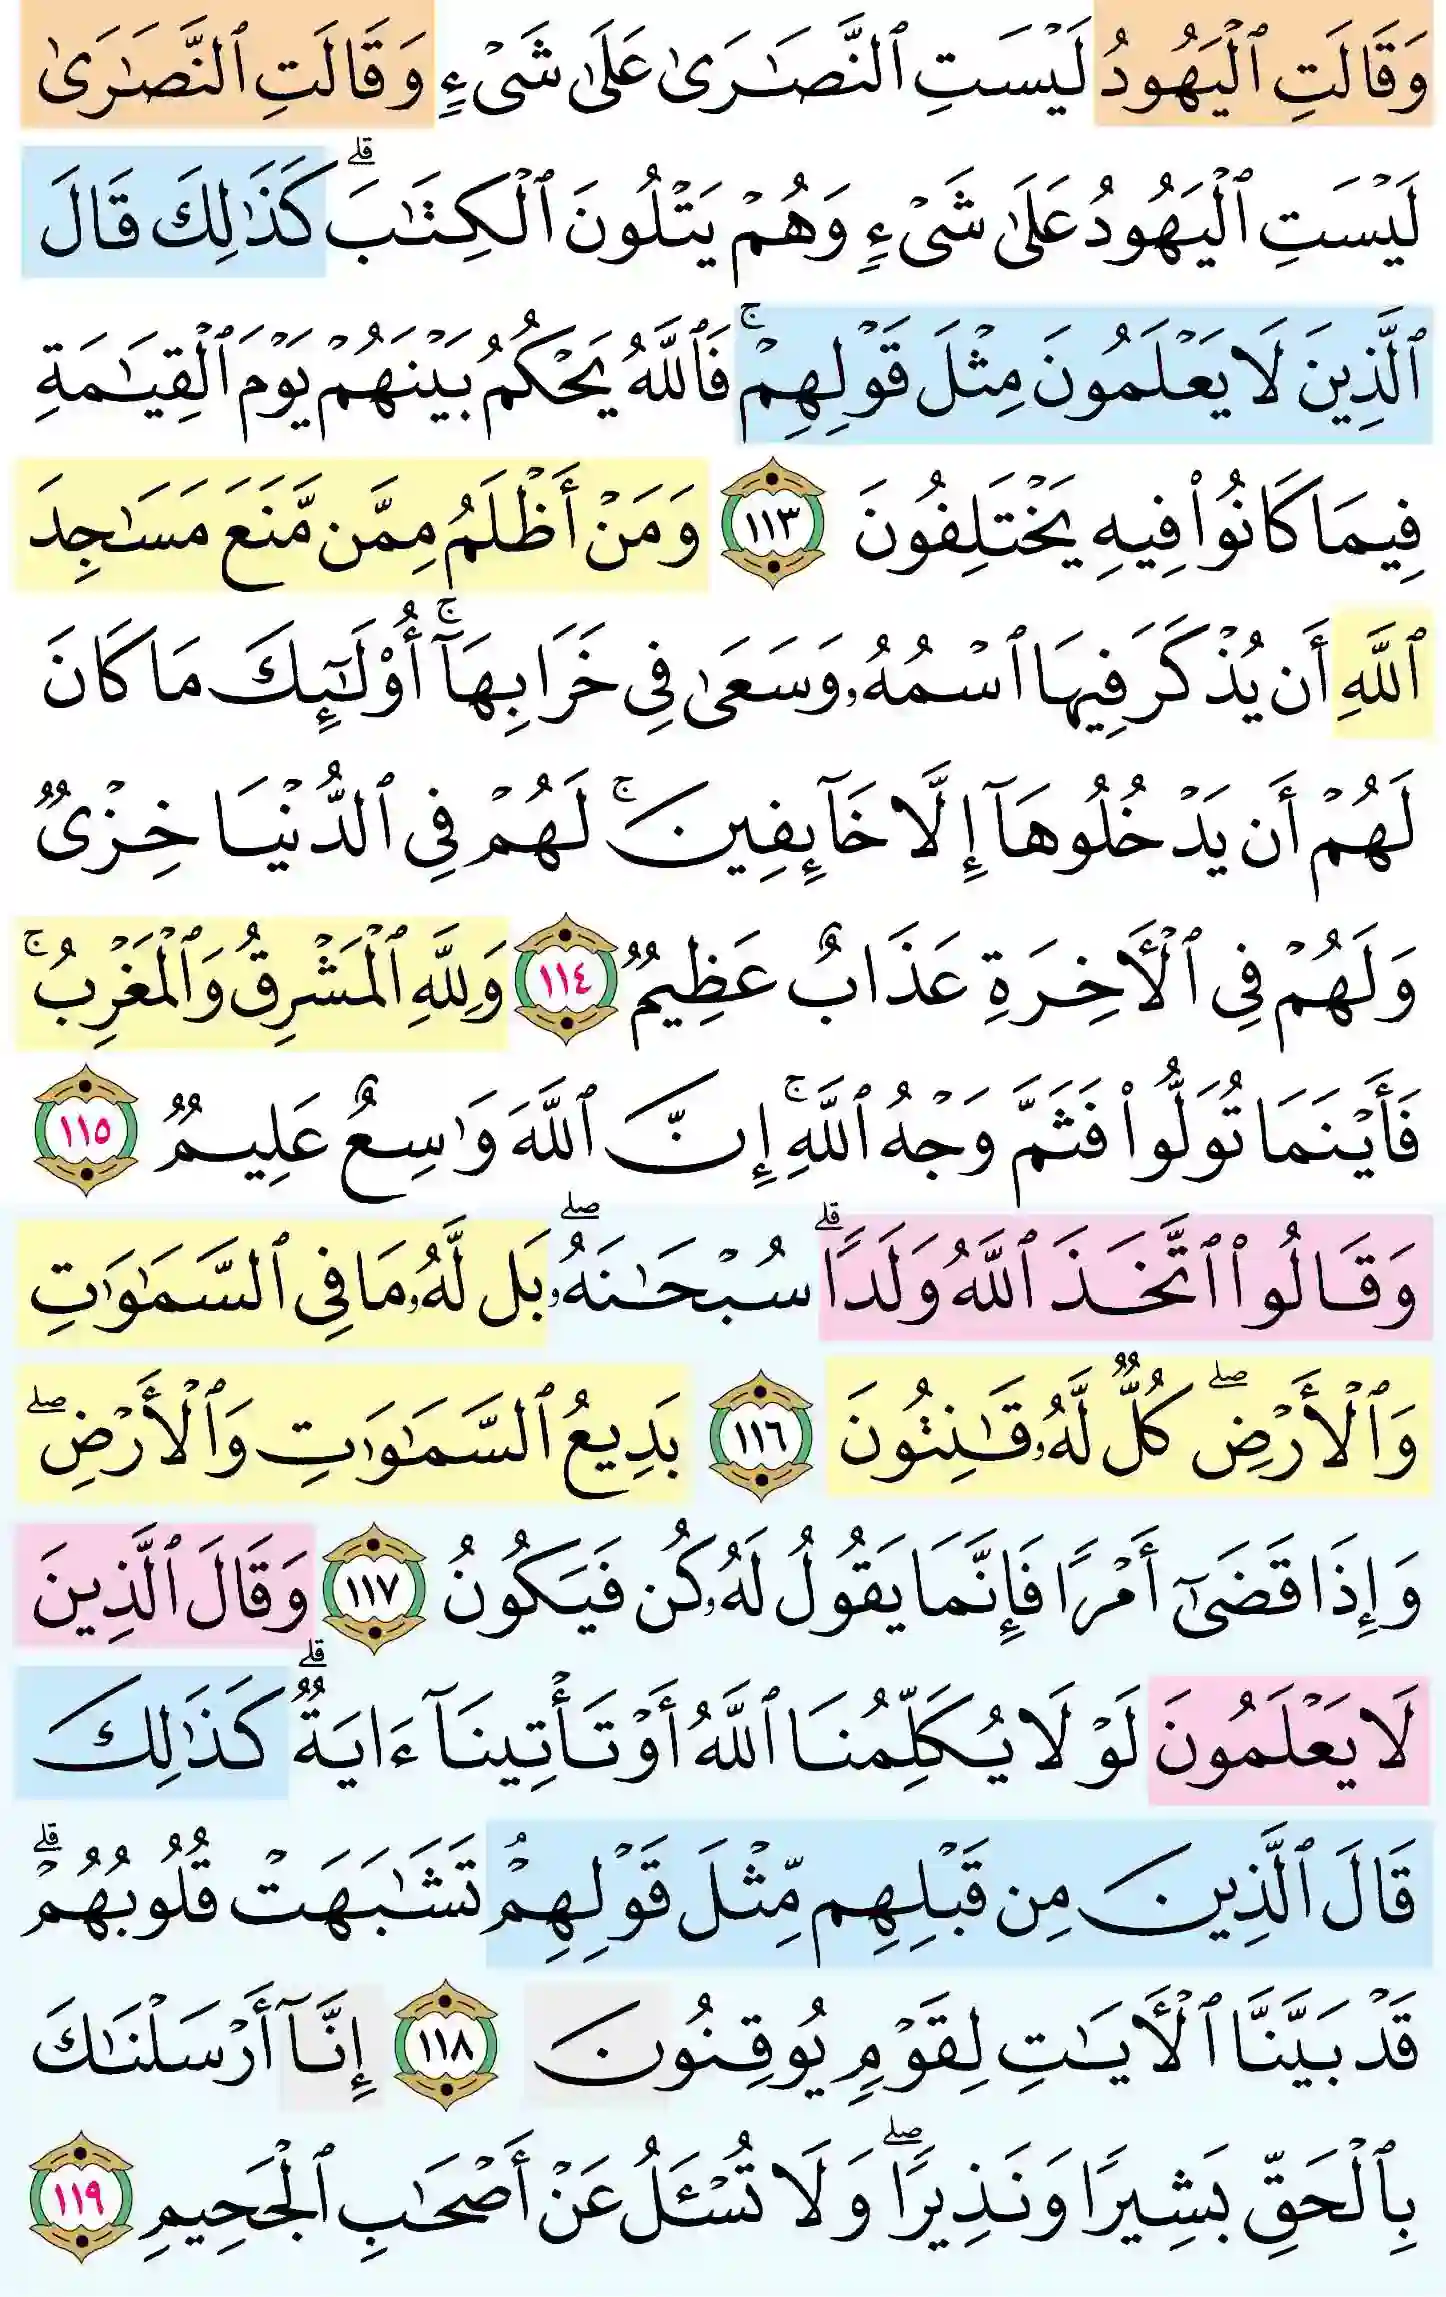 وَقَالَتِ ٱلْيَهُودُ لَيْسَتِ ٱلنَّصَـٰرَىٰ عَلَىٰ شَىْءٍ وَقَالَتِ ٱلنَّصَـٰرَىٰ
لَيْسَتِ ٱلْيَهُودُ عَلَىٰ شَىْءٍ وَهُمْ يَتْلُونَ ٱلْكِتَـٰبَ ۗ كَذَٰلِكَ قَالَ
ٱلَّذِينَ لَا يَعْلَمُونَ مِثْلَ قَوْلِهِمْ ۚ فَٱللَّهُ يَحْكُمُ بَيْنَهُمْ يَوْمَ ٱلْقِيَـٰمَةِ
فِيمَا كَانُوا۟ فِيهِ يَخْتَلِفُونَ ١١٣ وَمَنْ أَظْلَمُ مِمَّن مَّنَعَ مَسَـٰجِدَ
ٱللَّهِ أَن يُذْكَرَ فِيهَا ٱسْمُهُۥ وَسَعَىٰ فِى خَرَابِهَآ ۚ أُو۟لَـٰٓئِكَ مَا كَانَ
لَهُمْ أَن يَدْخُلُوهَآ إِلَّا خَآئِفِينَ ۚ لَهُمْ فِى ٱلدُّنْيَا خِزْىٌ
وَلَهُمْ فِى ٱلْـَٔاخِرَةِ عَذَابٌ عَظِيمٌ ١١٤ وَلِلَّهِ ٱلْمَشْرِقُ وَٱلْمَغْرِبُ ۚ
فَأَيْنَمَا تُوَلُّوا۟ فَثَمَّ وَجْهُ ٱللَّهِ ۚ إِنَّ ٱللَّهَ وَٰسِعٌ عَلِيمٌ ١١٥
وَقَالُوا۟ ٱتَّخَذَ ٱللَّهُ وَلَدًا ۗ سُبْحَـٰنَهُۥ ۖ بَل لَّهُۥ مَا فِى ٱلسَّمَـٰوَٰتِ
وَٱلْأَرْضِ ۖ كُلٌّ لَّهُۥ قَـٰنِتُونَ ١١٦ بَدِيعُ ٱلسَّمَـٰوَٰتِ وَٱلْأَرْضِ ۖ
وَإِذَا قَضَىٰٓ أَمْرًا فَإِنَّمَا يَقُولُ لَهُۥ كُن فَيَكُونُ ١١٧ وَقَالَ ٱلَّذِينَ
لَا يَعْلَمُونَ لَوْلَا يُكَلِّمُنَا ٱللَّهُ أَوْ تَأْتِينَآ ءَايَةٌ ۗ كَذَٰلِكَ
قَالَ ٱلَّذِينَ مِن قَبْلِهِم مِّثْلَ قَوْلِهِمْ ۘ تَشَـٰبَهَتْ قُلُوبُهُمْ ۗ
قَدْ بَيَّنَّا ٱلْـَٔايَـٰتِ لِقَوْمٍ يُوقِنُونَ ١١٨ إِنَّآ أَرْسَلْنَـٰكَ
بِٱلْحَقِّ بَشِيرًا وَنَذِيرًا ۖ وَلَا تُسْـَٔلُ عَنْ أَصْحَـٰبِ ٱلْجَحِيمِ ١١٩